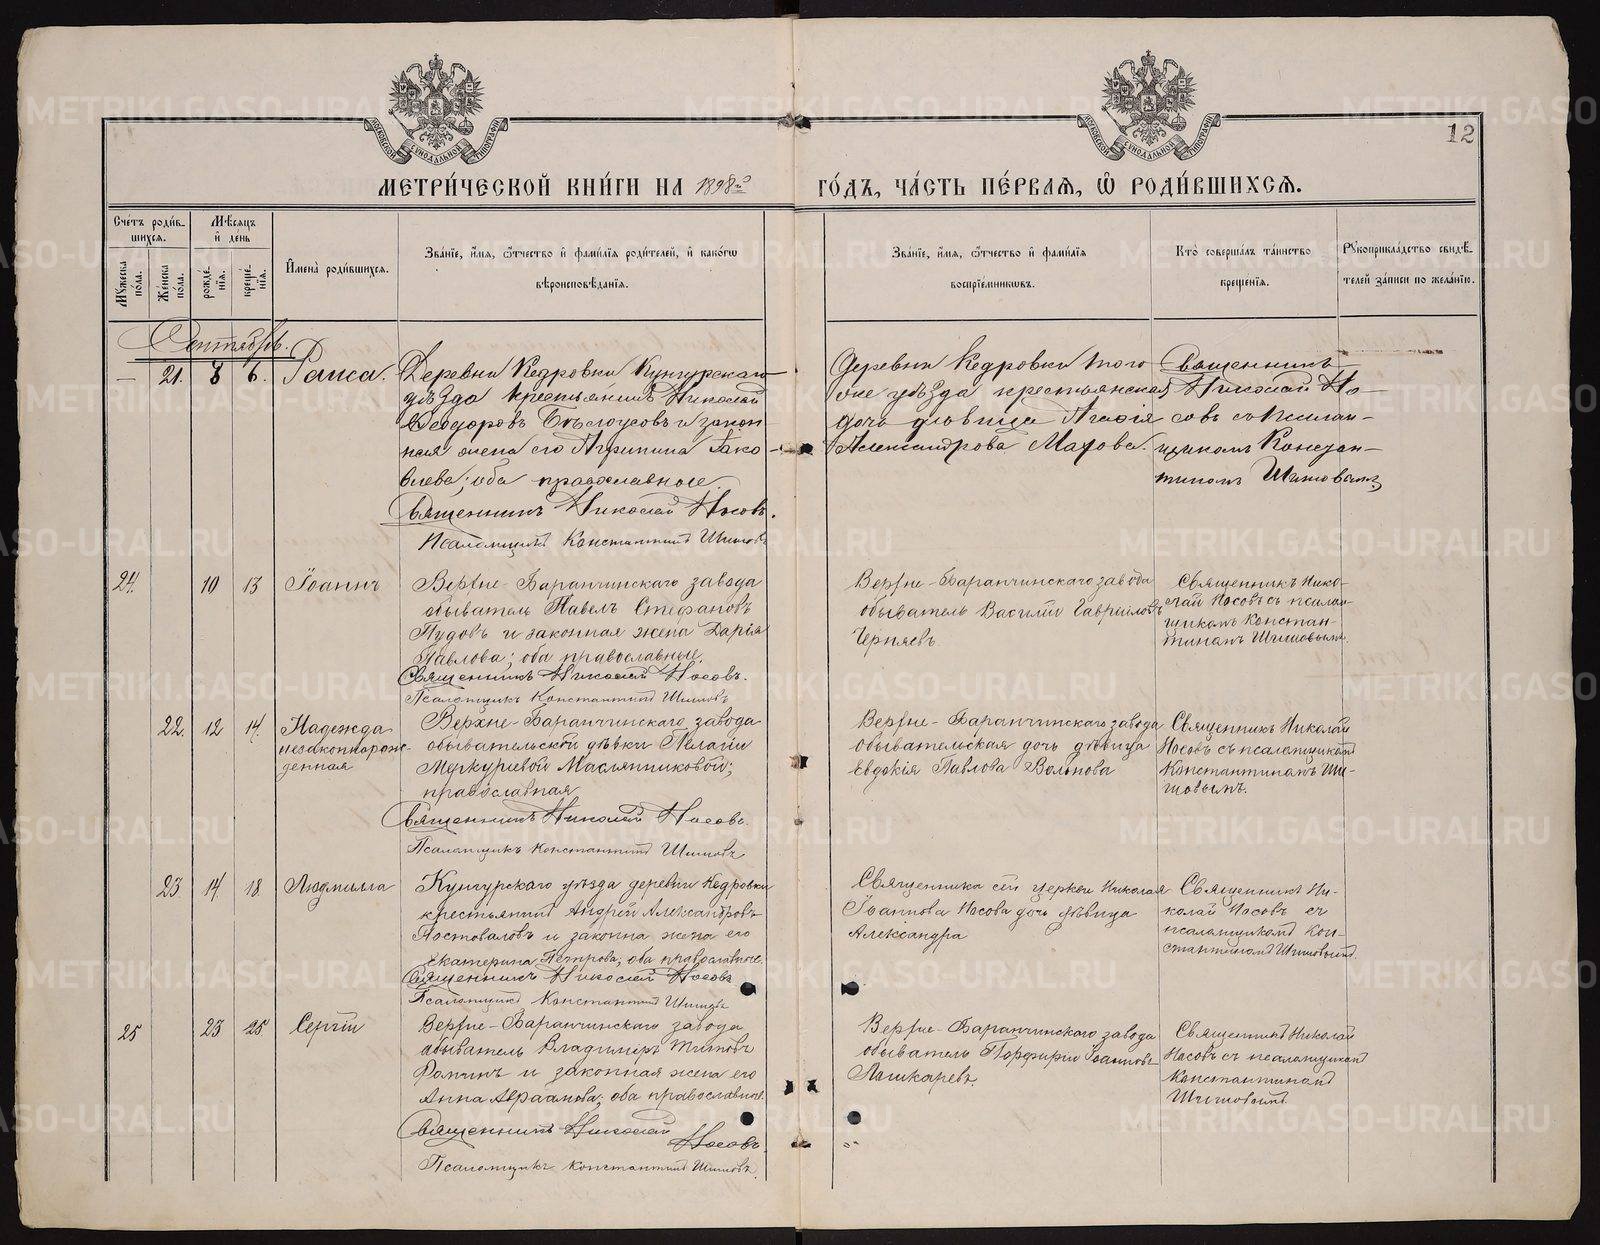 12
МЕТРИ́ЧЕСКОЙ КНИ́ГИ НА 1898й ГО́ДЪ, ЧА́СТЬ ПЕ́РВАѦ, Ѡ РОДИ́ВШИХСѦ.
Сче́тъ роди́в-
шихся.
Мѣ́сяцъ
и҆ день
Мꙋжеска по́ла.
Же́нска по́ла.
рожде́-нїѧ.
креще́-нїѧ.
И҆мена̀ роди́вшихсѧ.
Зва́нїе, и҆́мѧ, ѻ҆́тчество и҆ фами́лїѧ роди́телей, и҆ како́гѡ
вѣроисповѣ́данїѧ.
Зва́нїе, и҆́мѧ, ѻ҆́тчество и҆ фами́лїѧ
воспрїе́мникѡвъ.
Кто̀ соверша́лъ та́инство
креще́нїѧ.
Рꙋкоприкла́дство свидѣ́-
телей за́писи по жела́нїю.
Сентябрь.
— 21. 8 6. Раиса.
Деревни Кедровки Кунгурскаго
уѣзда крестьянинъ Николай
Ѳеодоровъ Бѣлоусовъ и закон-
ная жена его Агрипина Іако-
влева; оба православные
Священникъ Николай Носовъ.
Псаломщикъ Константинъ Шишовъ
Деревни Кедровки того
же уѣзда крестьянская
дочь дѣвица Агафія
Александрова Махова.
Священникъ
Николай Но-
совъ съ псалом-
щикомъ Констан-
тиномъ Шишовымъ
24. 10 13 Іоаннъ
Верхне-Баранчинскаго завода
обыватель Павелъ Стефановъ
Пудовъ и законная жена Дарія
Павлова; оба православные.
Священникъ Николай Носовъ.
Псаломщикъ Константинъ Шишовъ
Верхне-Баранчинскаго завода
обыватель Василій Гавриловъ
Черняевъ.
Священникъ Нико-
лай Носовъ съ псалом-
щикомъ Констан-
тиномъ Шишовымъ.
22. 12 14. Надежда
незаконнорож-
денная
Верхне-Баранчинскаго завода
обывательской дѣвки Пелагіи
Меркуріевой Маслянниковой;
православная
Священникъ Николай Носовъ.
Псаломщикъ Константинъ Шишовъ
Верхне-Баранчинскаго завода
обывательская дочь дѣвица
Евдокія Павлова Вольнова
Священникъ Николай
Носовъ съ псаломщикомъ
Константиномъ Ши-
шовымъ.
23 14. 18 Людмилла
Кунгурскаго уѣзда деревни Кедровки
крестьянинъ Андрей Александровъ
Постоваловъ и законна жена его
Екатерина Петрова; оба православные.
Священникъ Николай Носовъ
Псаломщикъ Константинъ Шишовъ
Священника сей церкви Николая
Іоаннова Носова дочь дѣвица
Александра
Священникъ Ни-
колай Носовъ съ
псаломщикомъ Кон-
стантиномъ Шишовымъ.
25 23 25 Сергій
Верхне-Баранчинскаго завода
обыватель Владиміръ Титовъ
Ромчинъ и законная жена его
Анна Авраамова; оба православные.
Священникъ Николай
Носовъ.
Псаломщикъ Константинъ Шишовъ.
Верхне-Баранчинскаго завода
обыватель Порфирій Іоанновъ
Лошкаревъ.
Священникъ Николай
Носовъ съ псаломщикомъ
Константиномъ
Шишовымъ